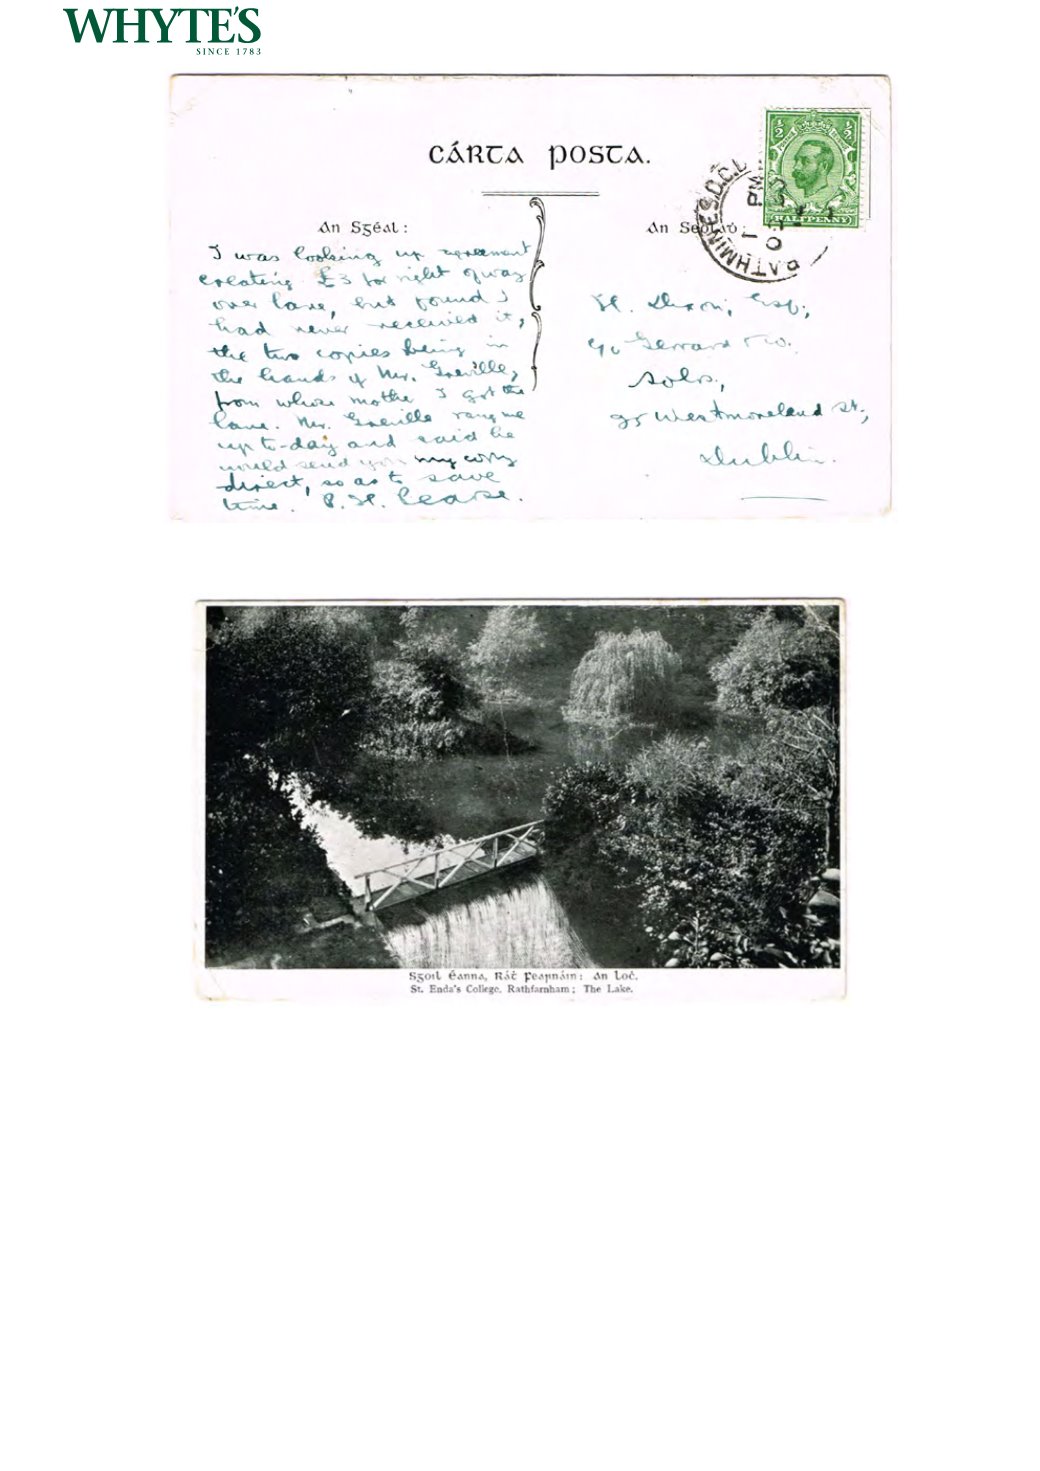 WHYTE'S
SINCE 1783
CÁRTA POSTA.
An Sgéal:
An Seolaḋ:
½ ½
HALFPENNY
RATHMINES.D.C.D
I was looking up agreement
creating £3 for right of way
over lane, but found I
had never received it,
the two copies being in
the hands of Mr. Greville,
from whose mother I got the
lane. Mr. Greville rang me
up to-day and said he
would send you my copy
direct, so as to save
time. P. H. Pearse.
H. Dixon, Esq.,
c/o Gerrard & Co.
Solrs,
35 Westmoreland St.,
Dublin.
Sgoil Éanna, Ráṫ Fearnáin: An Loċ.
St. Enda's College, Rathfarnham; The Lake.